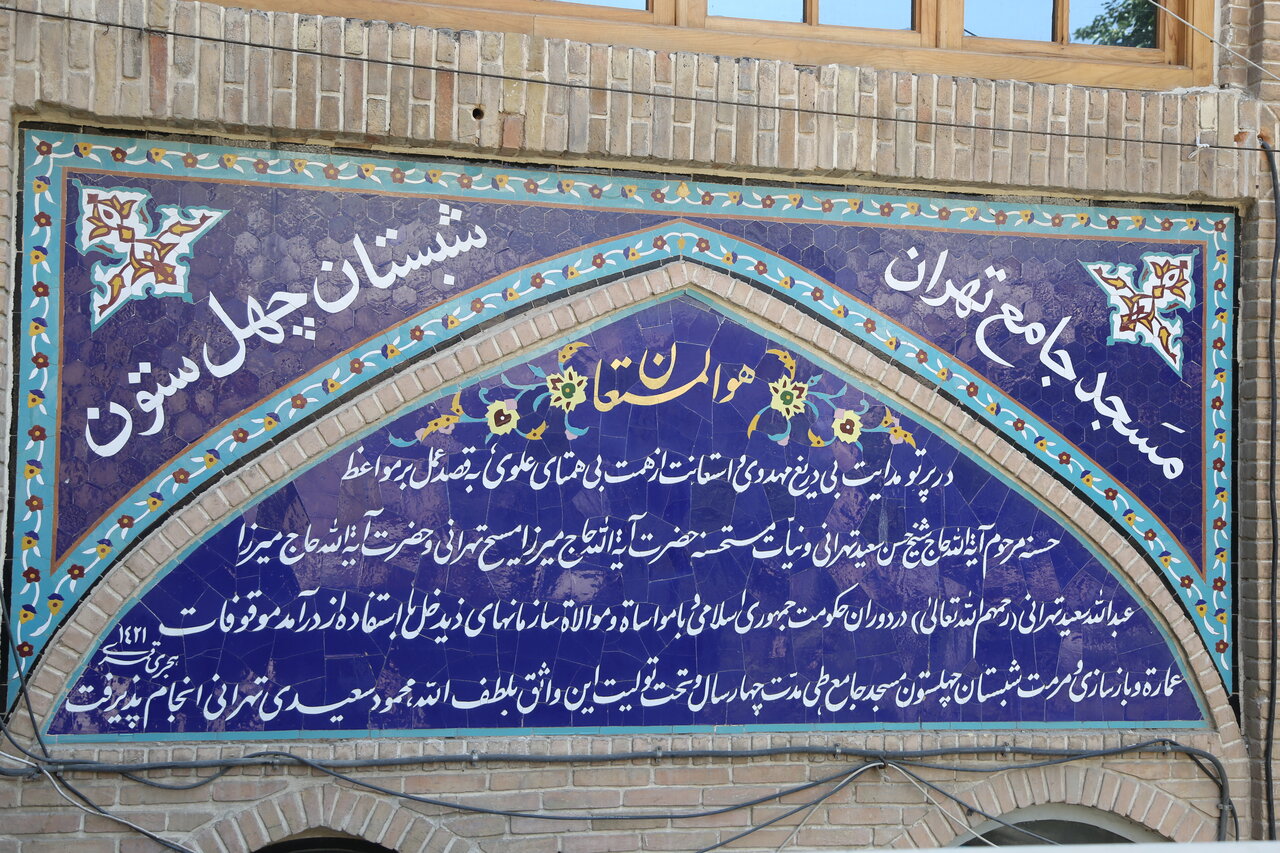 مسجد جامع تهران
شبستان چهل ستون
هوالمستعان
در پرتو هدایت بی دریغ مهدوی و استعانت از همت بی همتای علوی به قصد عمل بر مواعظ
حسنه مرحوم آیة الله حاج شیخ حسن سعید تهرانی و نیات مستحسنه حضرت آیة الله حاج میرزا مسیح تهرانی و حضرت آیة الله حاج میرزا
عبدالله سعید تهرانی (رحمهم الله تعالی) در دوران حکومت جمهوری اسلامی و با مواساة و موالاة سازمانهای ذیدخل با استفاده از درآمد موقوفات
عمارة و بازسازی و مرمت شبستان چهلستون مسجد جامع طی مدت چهار سال و تحت تولیت این واثق بلطف الله محمود سعیدی تهرانی انجام پذیرفت
۱۴۲۱ هجری قمری